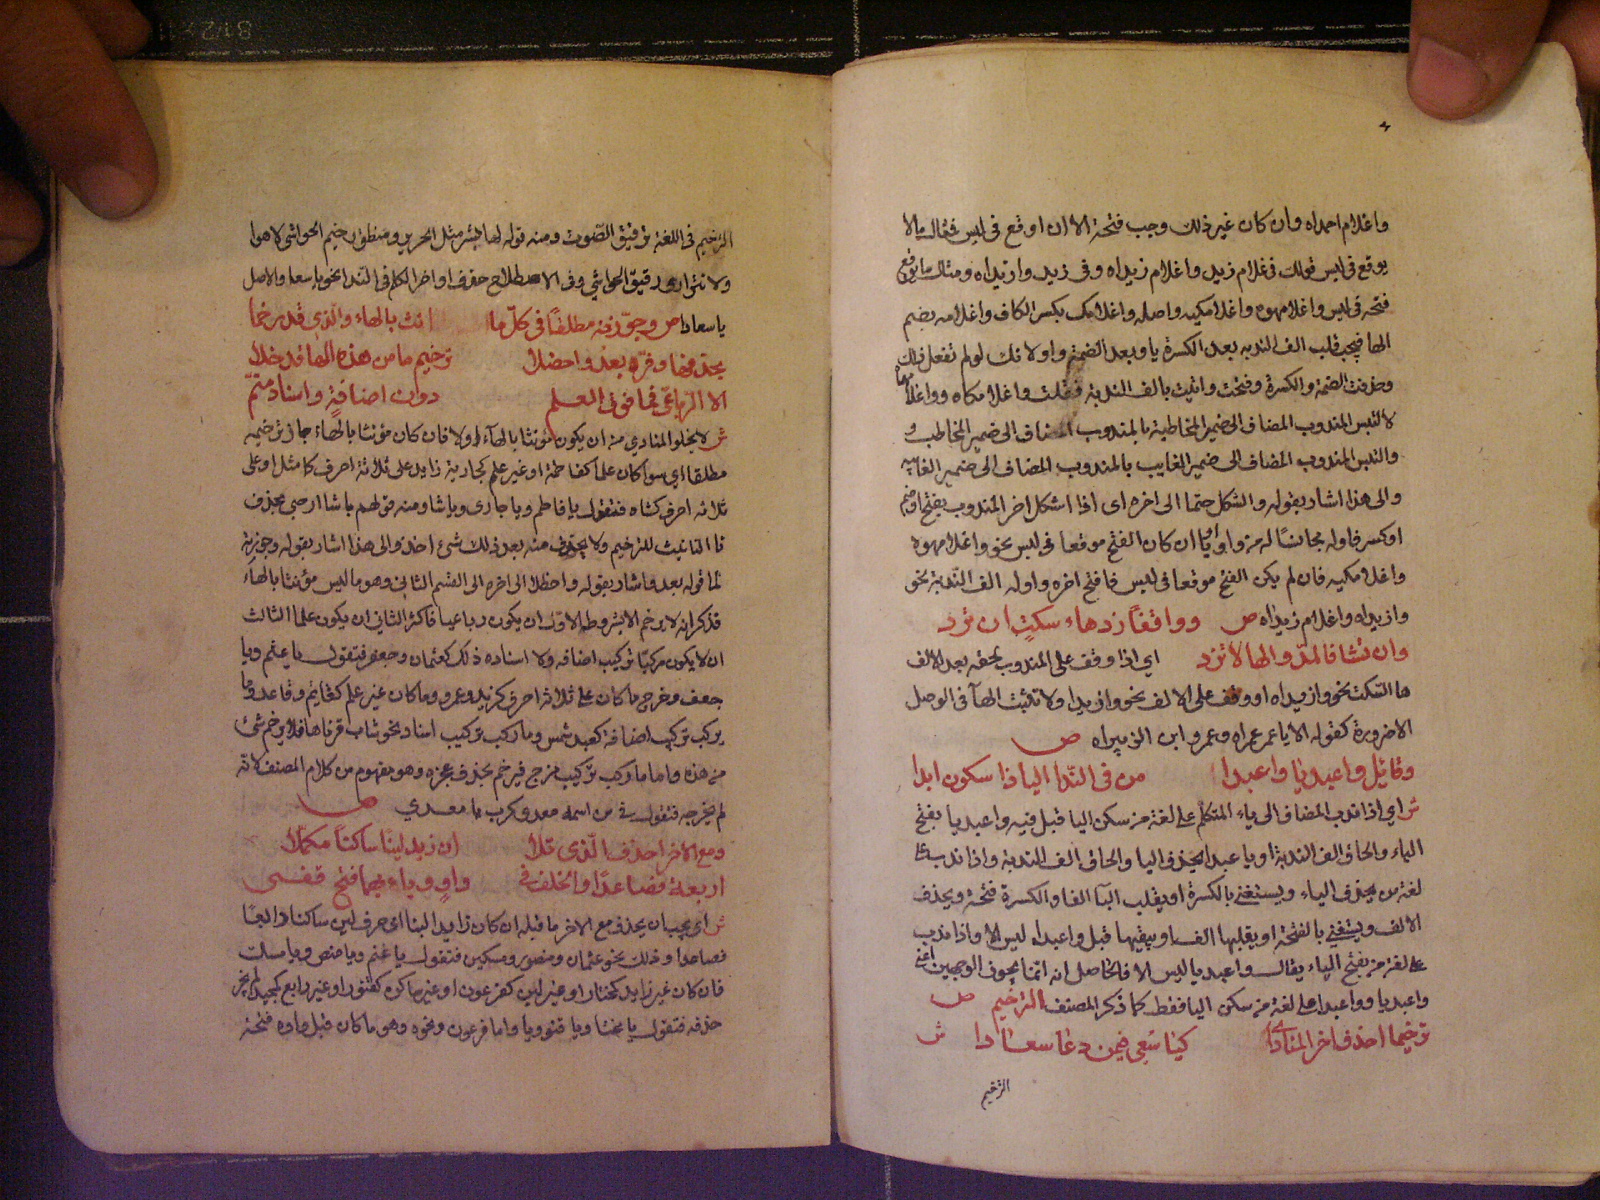 واغلام احمداه وان كان غير ذلك وجب فتحة الا ان اوقع في لبس فمثال مالا
يوقع في لبس قولك في غلام زيد واغلام زيداه وفي زيد وازيداه ومثال ما يوقع
فتحه في لبس واغلامهوه واغلامكيه واصله واغلامك بكسر الكاف واغلامه بضم
الها فيجب قلب الف الندبه بعد الكسرة يا وبعد الضمة واو لانك لو لم تفعل ذلك
وحذفت الضمة والكسرة وفتحت واتيت بالف الندبة فقلت واغلامكاه وواغلامهاه
لالتبس المندوب المضاف الى ضمير المخاطبة بالمندوب المضاف الى ضمير المخاطب و
والتبس المندوب المضاف الى ضمير الغايب بالمندوب المضاف الى ضمير الغايبه
والى هذا اشار بقوله والشكل حتما الى اخره اى اذا اشكل اخر المندوب بفتح او ضم
او كسر فاوله مجانسا له من واو او يا ان كان الفتح موقعا في لبس نحو واغلامهوه
واغلامكيه فان لم يكن الفتح موقعا في لبس فافتح اخره واوله الف الندبة نحو
وازيداه واغلام زيداه ص وواقفا زد هاء سكت ان ترد
وان تشا فالمد والها لا تزد اي اذا وقف على المندوب لحقه بعد الالف
ها السكت نحو وازيداه او وقف على الالف نحو وازيدا ولا تثبت الهآ في الوصل
الا ضرورة كقوله الا يا عمر عمراه وعمرو ابن الزبيراه ص
وقائل واعبديا واعبدا من في الندا اليا ذا سكون ابدا
ش اي اذا ندب المضاف الى ياء المتكلم على لغة من سكن اليا قيل فيه واعبديا بفتح
الياء والحاق الف الندبة او يا عبدا بحذف اليا والحاق الف الندبة واذا ندب على
لغة من يحذف الياء ويستغنى بالكسرة او يقلب اليآ الفا والكسرة فتحة ويحذف
الالف ويستغنى بالفتحة او يقلبها الفا ويبقيها قيل واعبداه ليس الا واذا ندب
على لغة من يفتح الياء يقال واعبديا ليس الا فالحاصل انه انما يجوز الوجهين اعنى
واعبديا وواعبدا على لغة من سكن اليا فقط كما ذكر المصنف الترخيم ص
ترخيما احذف اخر المنادى كيا سعى فيمن دعا سعادا ش
الترخيم
الترخيم في اللغة ترقيق الصوت ومنه قوله لها بشر مثل الحرير ومنطق رخيم الحواشي لا هوا
ولا نثر اى رقيق الحواشي وفي الاصطلاح حذف اواخر الكلم في الندا نحو يا سعا والاصل
يا سعاد ص وجوزنه مطلقا في كل ما انث بالهاء والذي قد رخما
بحذفها وفره بعد واحضلا ترخيم ما من هذه الها قد خلا
الا الرباعي فما فوق العلم دون اضافة واسناد متم
ش لا يخلو المنادي من ان يكون مؤنثا بالهآء اولا فان كان مؤنثا بالهاء جاز ترخيمه
مطلقا اى سوا كان علما كفاطمة او غير علم كجارية زايد على ثلاثة احرف كامثل او على
ثلاثه احرف كشاه فتقول يا فاطم ويا جارى ويا شا ومنه قولهم يا شا ارجى بحذف
تا التانيث للترخيم ولا يحذف منه بعد ذلك شئ اخر والى هذا اشار بقوله وجوزنه
الى قوله بعد واشار بقوله واحظلا الى اخره الى القسم الثاني وهو ما ليس مؤنثا بالهاء
فذكر انه لا يرخم الا بشروط الاول ان يكون رباعيا فاكثر الثاني ان يكون علما الثالث
ان لا يكون مركبا تركيب اضافه ولا اسناده ذلك كعثمان وجعفر فتقول يا عثم ويا
جعف وخرج ما كان على ثلاثه احرف كزيد وعمرو وما كان غير علم كقايم وقاعد وما
يركب تركيب اضافة كعبد شمس وما ركب تركيب اسناد نحو شاب قرناها فلا يرخم شئ
من هذه واما ما ركب تركيب مزج فيرخم بحذف عجزه وهو مفهوم من كلام المصنف لانه
لم يخرجه فتقول في من اسمه معدوكرب يا معدي ص
ومع الاخر احذف الذي تلا ان زيد لينا ساكنا مكملا
اربعة فصاعدا والخلف في واو وياء بهما فتح قفى
ش اى يجب ان يحذف مع الاخر ما قبله ان كان زايدا لينا اى حرف لين ساكنا رابعا
فصاعدا وذلك نحو عثمان ومنصور ومسكين فتقول يا عثم ويا منص ويا مسك
فان كان غير زايد كمختار او غير لين كفرعون او غير ساكن كقنور او غير رابع كمجيد لم يجز
حذفه فتقول يا مختا ويا قنو ويا واما فرعون ونحوه وهو ما كان قبل واوه فتحة